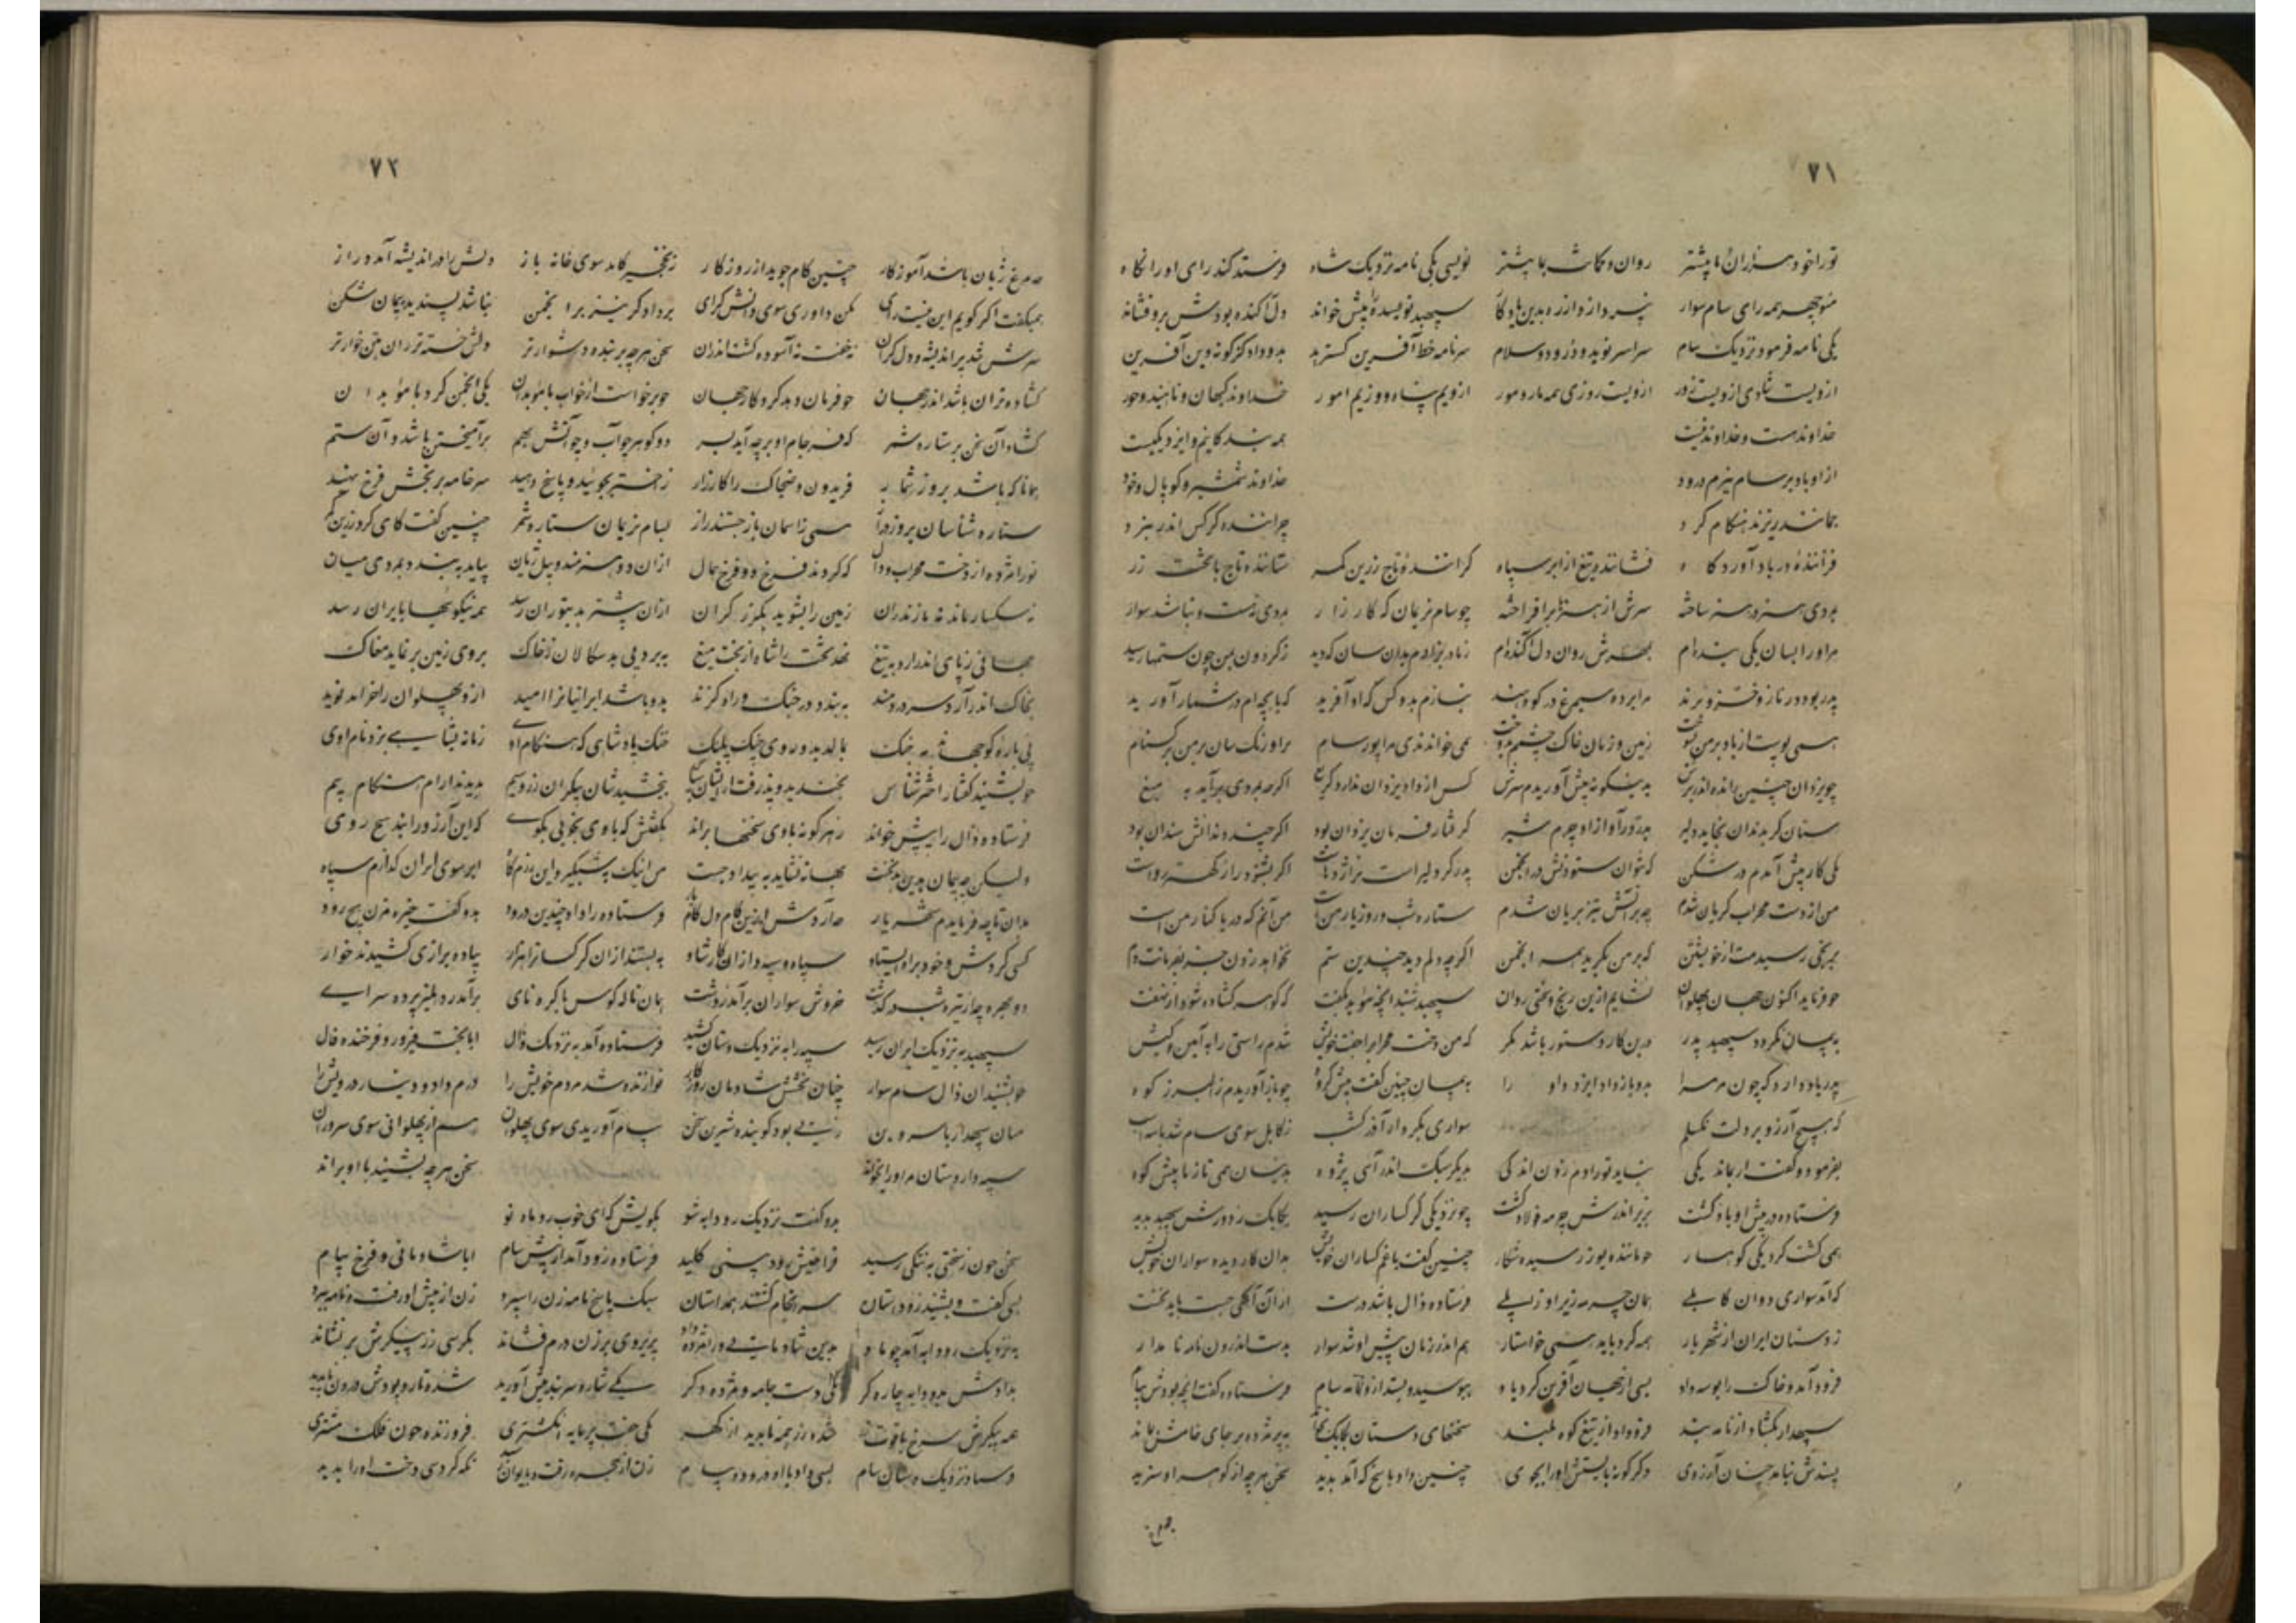 ۷۱
تو را خود هزاران بیشتر روان و کمانت بما بیشتر نویسی یکی نامه نزدیک شاه فرستد کند رای او را نگاه
منوچهر همه رای سام سوار نپردازد از ره بدین سپهبد نویسنده را پیش خواند دل آکنده بودش برو فشاند
یکی نامه فرمود نزدیک سام سراسر نوید و درود و سلام سر نامه خط آفرین گسترید بدو داد کز گونه دین آفرین
ازویست شادی ازویست زور ازویست روزی همه مار و مور ازویم پناه و وزیم امور خداوند کیهان و ناهید و هور
خداوند هست و خداوند نیست همه بندگانیم و ایزد یکیست
از او باد بر سام نیرم درود خداوند شمشیر و کوپال و خود
چماننده هنگام گرد چراننده کرکس اندر نبرد
فزاینده باد آوردگاه فشاننده تیغ از ابر سیاه گراینده تاج زرین کمر نشاننده تاج با تخت زر
بمردی هنر در هنر ساخته سرش از هنرها برافراخته چو سام نریمان که کارزار بمردی نباشد سوار
مر او را بسان یکی بنده ام بمهرش روان و دل آکنده ام ز مادر بزادم بدان سان که دید ز گردون بمن چون ستمها رسید
پدر بود در ناز و خز و پرند مرا برده سیمرغ در کوه هند نیازم بدو کس که او آفرید که با بچه ام در شمار آورید
همی پوست از باد بر من بسوخت زمین و زمان خاک چشمم بدوخت همی خواندندی مرا پور سام بر اورنگ سام و من بر کنام
چو یزدان چنین راند اندر برین بدینگونه پیش آوریدم سرش کس از داد یزدان ندارد گریغ اگرچه بمردی برآید به میغ
سنان گر بدندان بخاید دلیر بدرد ز آواز او چرم شیر گرفتار فرمان یزدان بود اگرچند دندانش سندان بود
یکی کار پیش آمدم دل شکن که نتوان ستودنش در انجمن پدر گر دلیر است و نر اژدهاست اگر بشنود راز کهتر رواست
من از دخت مهراب گریان شدم چو بر آتش تیز بریان شدم ستاره شب و روز یار من است من آنم که دریا کنار من است
برنجی رسیدست از خویشتن که بر من بگرید همه انجمن اگرچه دلم دید چندین ستم نخواهد زدن جز بفرمانت دم
چو فرماید اکنون جهان پهلوان گشایم ازین رنج و سختی روان سپهبد شنید آنچه موبد بگفت که گوهر گشاده شود از نهفت
به پیمان نگردد سپهبد پدر درین کار دستور باشد مگر که من دخت مهراب را جفت خویش کنم راستی را به آیین و کیش
پدر یاد دارد که چون مر مرا بدو باز داد ایزد داورا به پیمان چنین گفت پیش گروه چو باز آوریدم ز البرز کوه
که هیچ آرزو بر دلت نگسلم سواری بکردار آذرگشسب ز کابل سوی سام شد بر سه اسب
بفرمود و گفت ار بماند یکی نباید تو را دم زدن اندکی بدیگر سبک اندر آی پژوه بدینسان همی تاز تا پیش کوه
فرستاده در پیش او باد گشت بزیر اندرش چرمه فولاد گشت چو نزدیکی گرگساران رسید یکایک ز دورش سپهبد بدید
همی گشت گرد یکی کوهسار چماننده یوز و رسیده شکار چنین گفت با غم گساران خویش بدان کار دیده سواران خویش
که آمد سواری دوان کابلی چمان چرمه زیر او زابلی فرستاده زال باشد درست از آن آگهی جست باید نخست
ز دستان و ایران و از شهریار همه کرد باید سخن خواستار هم اندر زمان پیش او شد سوار بدست اندرون نامه نامدار
فرود آمد و خاک را بوسه داد بسی از جهان آفرین کرد یاد بپرسید و بستد از و نامه سام فرستاده گفت آنچه بودش پیام
سپهدار بگشاد از نامه بند فرود آمد از تیغ کوه بلند سخنهای دستان یکایک بخواند بپژمرد و بر جای خامش بماند
پسندش نیامد چنان آرزوی دگرگونه بایستش او را بخوی چنین داد پاسخ که آمد پدید سخن هر چه از گوهر او سزید
چو مرغ
۷۲
چو مرغ ژیان باشد آموزگار چنین کام جوید از روزگار ز نخجیر کامد سوی خانه باز دلش را در اندیشه آمد دراز
همیگفت اگر گویم این نیست رای مکن داوری سوی دانش گرای نباشد پسندیده پیمان شکن
سرش شد پر اندیشه و دل گران نخفت نه آسوده گشت اندران سخن هر چه بر بنده دشوارتر دلش خسته تر زان تن خوارتر
گشاده تر آن باشد اندر جهان چو فرمان دهد کردگار جهان چو برخاست از خواب با موبدان یکی انجمن کرد با موبدان
گشاد آن سخن بر ستاره شمر که فرجام او بر چه آید بسر دو گوهر چو آب و چو آتش بهم برآمیختن باشد و آن ستم
همانا که باشد بروز شمار فریدون و ضحاک را کارزار ز اختر بجوئید و پاسخ دهید سر خامه بر بخش فرخ نهید
ستاره شناسان بروز دراز همی ز آسمان باز جستند راز بسام نریمان ستاره شمر چنین گفت کای گرد زرین کمر
تو را مژده از دخت مهراب و زال که گردند فرخ دو فرخ همال ازان دو هنرمند پیل ژیان بیاید ببندد بمردی میان
نه سگسار ماند نه مازندران زمین را بشوید بگرز گران ازان بیشتر بد بتوران رسد همه نیکوئیها بایران رسد
جهانی ز پای اندر آرد به تیغ نهد تخت را شاه از تخت میغ ببرد پی بدسگالان ز خاک بروی زمین بر نماید مغاک
بخاک اندر آرد سر دردمند به بندد در جنگ و راه گزند بدو باشد ایرانیان را امید از و پهلوان را خرام و نوید
پی باره کو جهاند به جنگ بمالد بدو روی جنگی پلنگ خنک پادشاهی که هنگام اوی زمانه بشاهی برد نام اوی
چو بشنید گفتار اخترشناس بخندید و پذرفت از ایشان سپاس ببخشیدشان بیکران زر و سیم پدید آرام هنگام بیم
فرستاده زال را پیش خواند ز هر گونه با وی سخنها براند بگفتش که با وی بخوبی بگوی که این آرزو را نبد هیچ روی
ولیکن چو پیمان بدین بد نخست بهانه نشاید به بیداد جست من اینک بشبگیر ازین رزمگاه ابر سوی ایران گذارم سپاه
بدان تا چه فرمایدم شهریار چه آردش ازین کام دل فرستاده را داد چندین درود بدو گفت خیره مزن هیچ رود
گسی کردش و خود براه ایستاد سپاه و سپهد ازان کار شاد به بستند ازان گرگساران هزار پیاده بزاری کشیدند خوار
دو بهره چو از تیره شب درگذشت خروش سواران برآمد ز دشت همان ناله کوس با کره نای برآمد ز دهلیز پرده سرای
سپهبد به نزدیک ایران رسید سپه را به نزدیک دستان کشید فرستاده آمد به نزدیک زال ابا بخت فیروز و فرخنده فال
چو بشنید آن زال سام سوار چنان بخشش شادمان روزگار نوازنده شد مردم خویش را درم داد و دینار درویش را
زنی بود گوینده شیرین سخن پیام آوریدی سوی پهلوان هم از پهلوانی سوی سروران
سپهدار دستان مر او را بخواند سخن هر چه بشنید با او براند
بدو گفت نزدیک رودابه شو بگویش که ای خوب رو ماه نو
سخن چون ز سختی به تنگی رسید فراخیش زود بینی کلید فرستاده زود آمد از پیش سام ابا شادمانی و فرخ پیام
بسی گفت و بشنید زد داستان سرانجام گشتند همداستان سبک پاسخ نامه زن را سپرد زن از پیش او رفت و نامه ببرد
به نزدیک رودابه آمد چو باد بدین شادمانی ورا مژده داد پریروی بر زن درم فشاند بکرسی زر پیکرش بر نشاند
یکی دست جامه و مژده دگر یکی شاره سربند پیش آورید شده تار و پودش درون ناپدید
همه پیکرش سرخ یاقوت شده زر همه ناپدید از گهر یکی جفت پر مایه انگشتری فروزنده چون فلک مشتری
فرستاد نزدیک دستان سام بسی داد با او درود و پیام زن از حجره رفت و بایوان نگه کرد سیندخت او را بدید